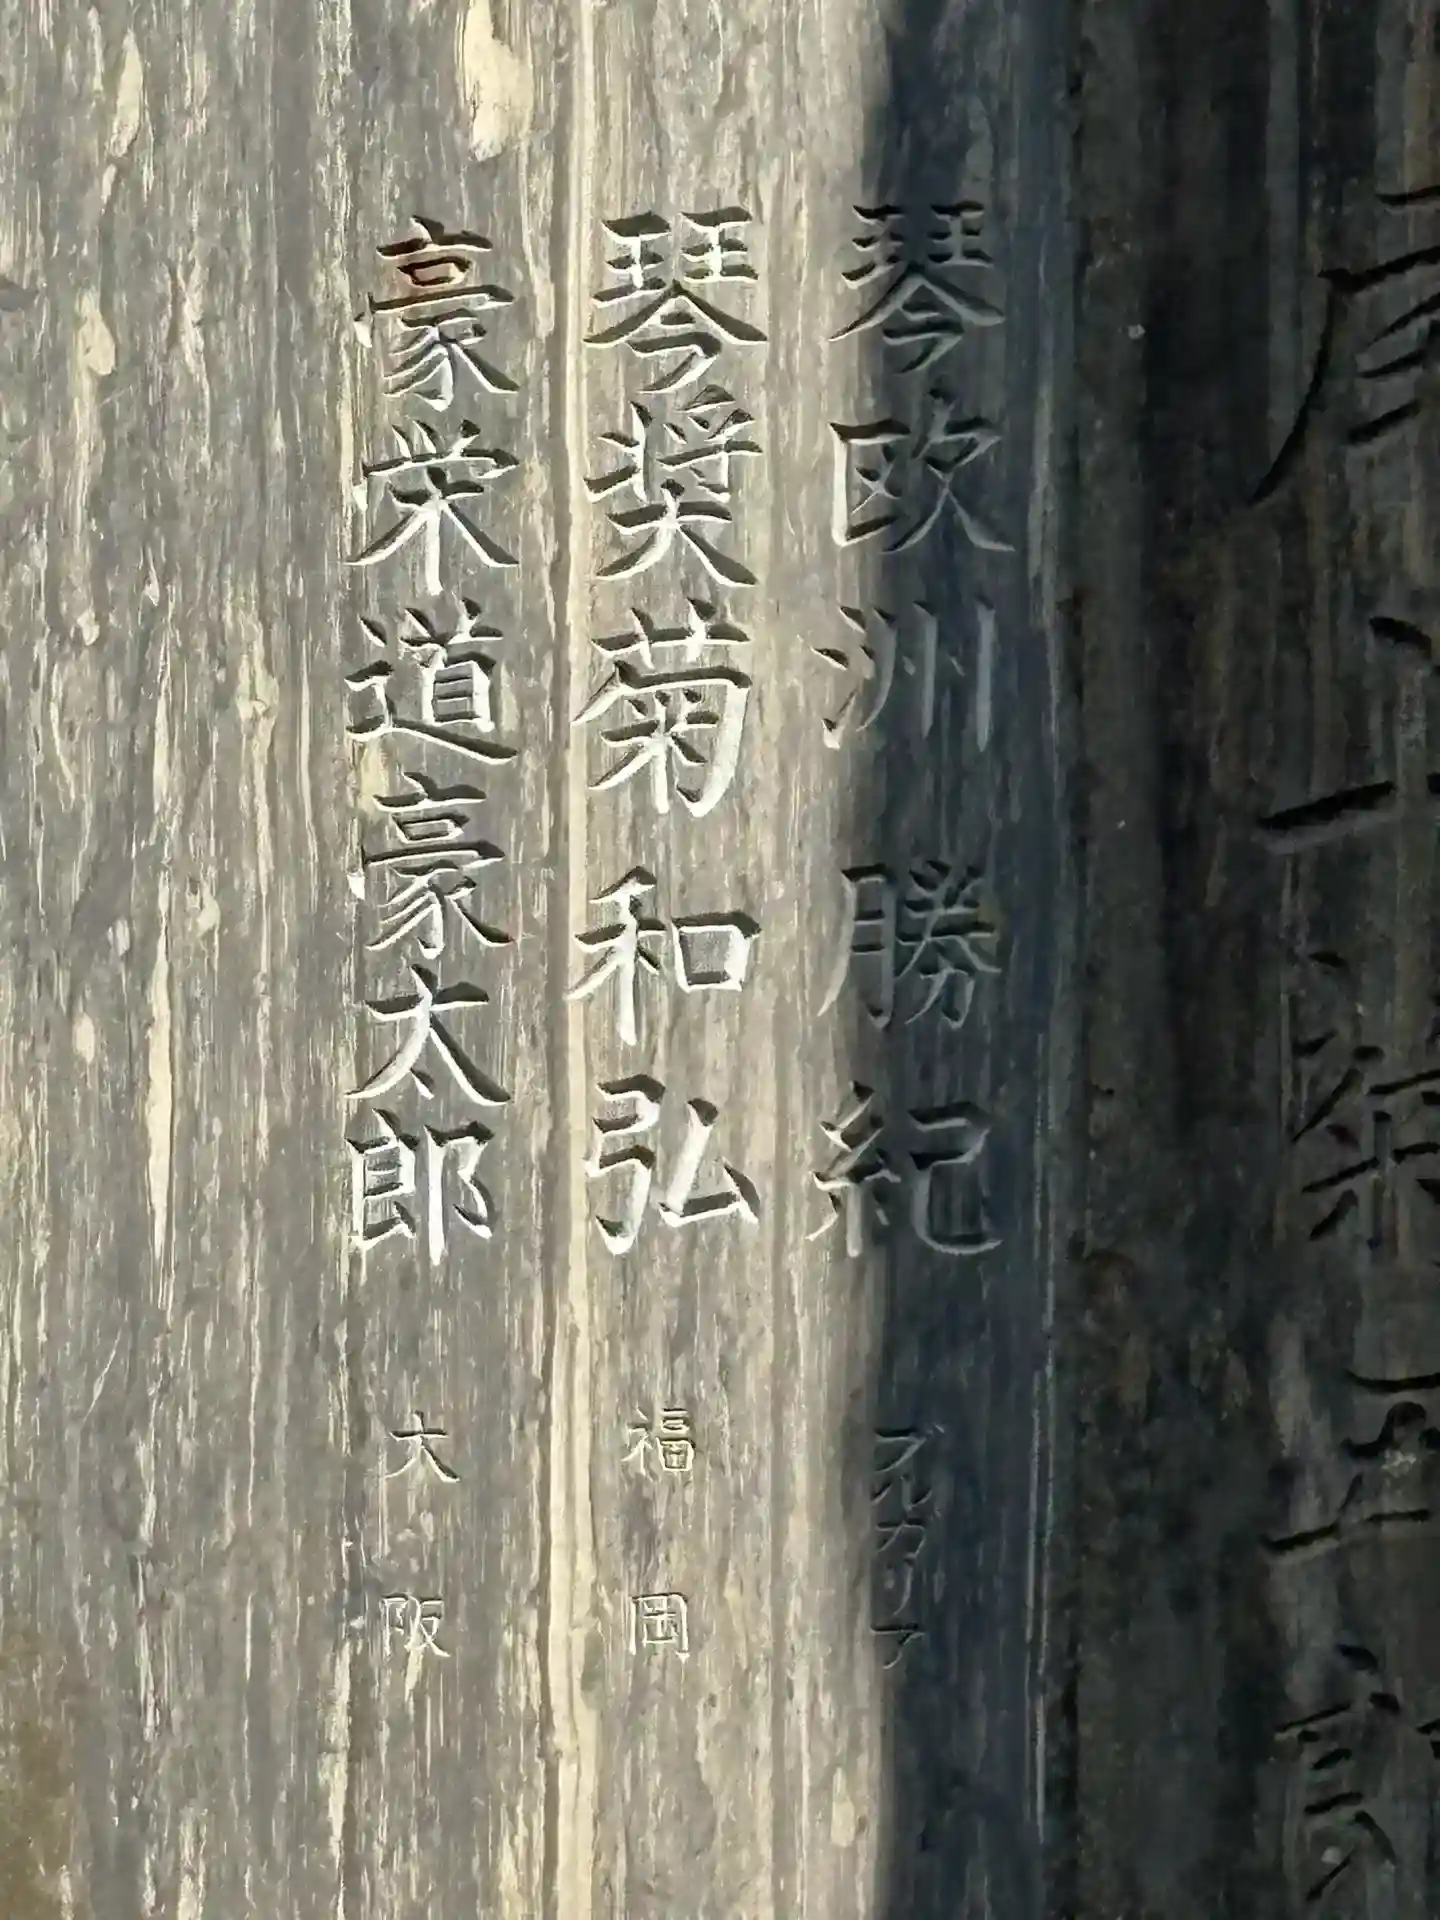 琴欧洲勝紀 ブルガリア
琴奨菊和弘 福岡
豪栄道豪太郎 大阪